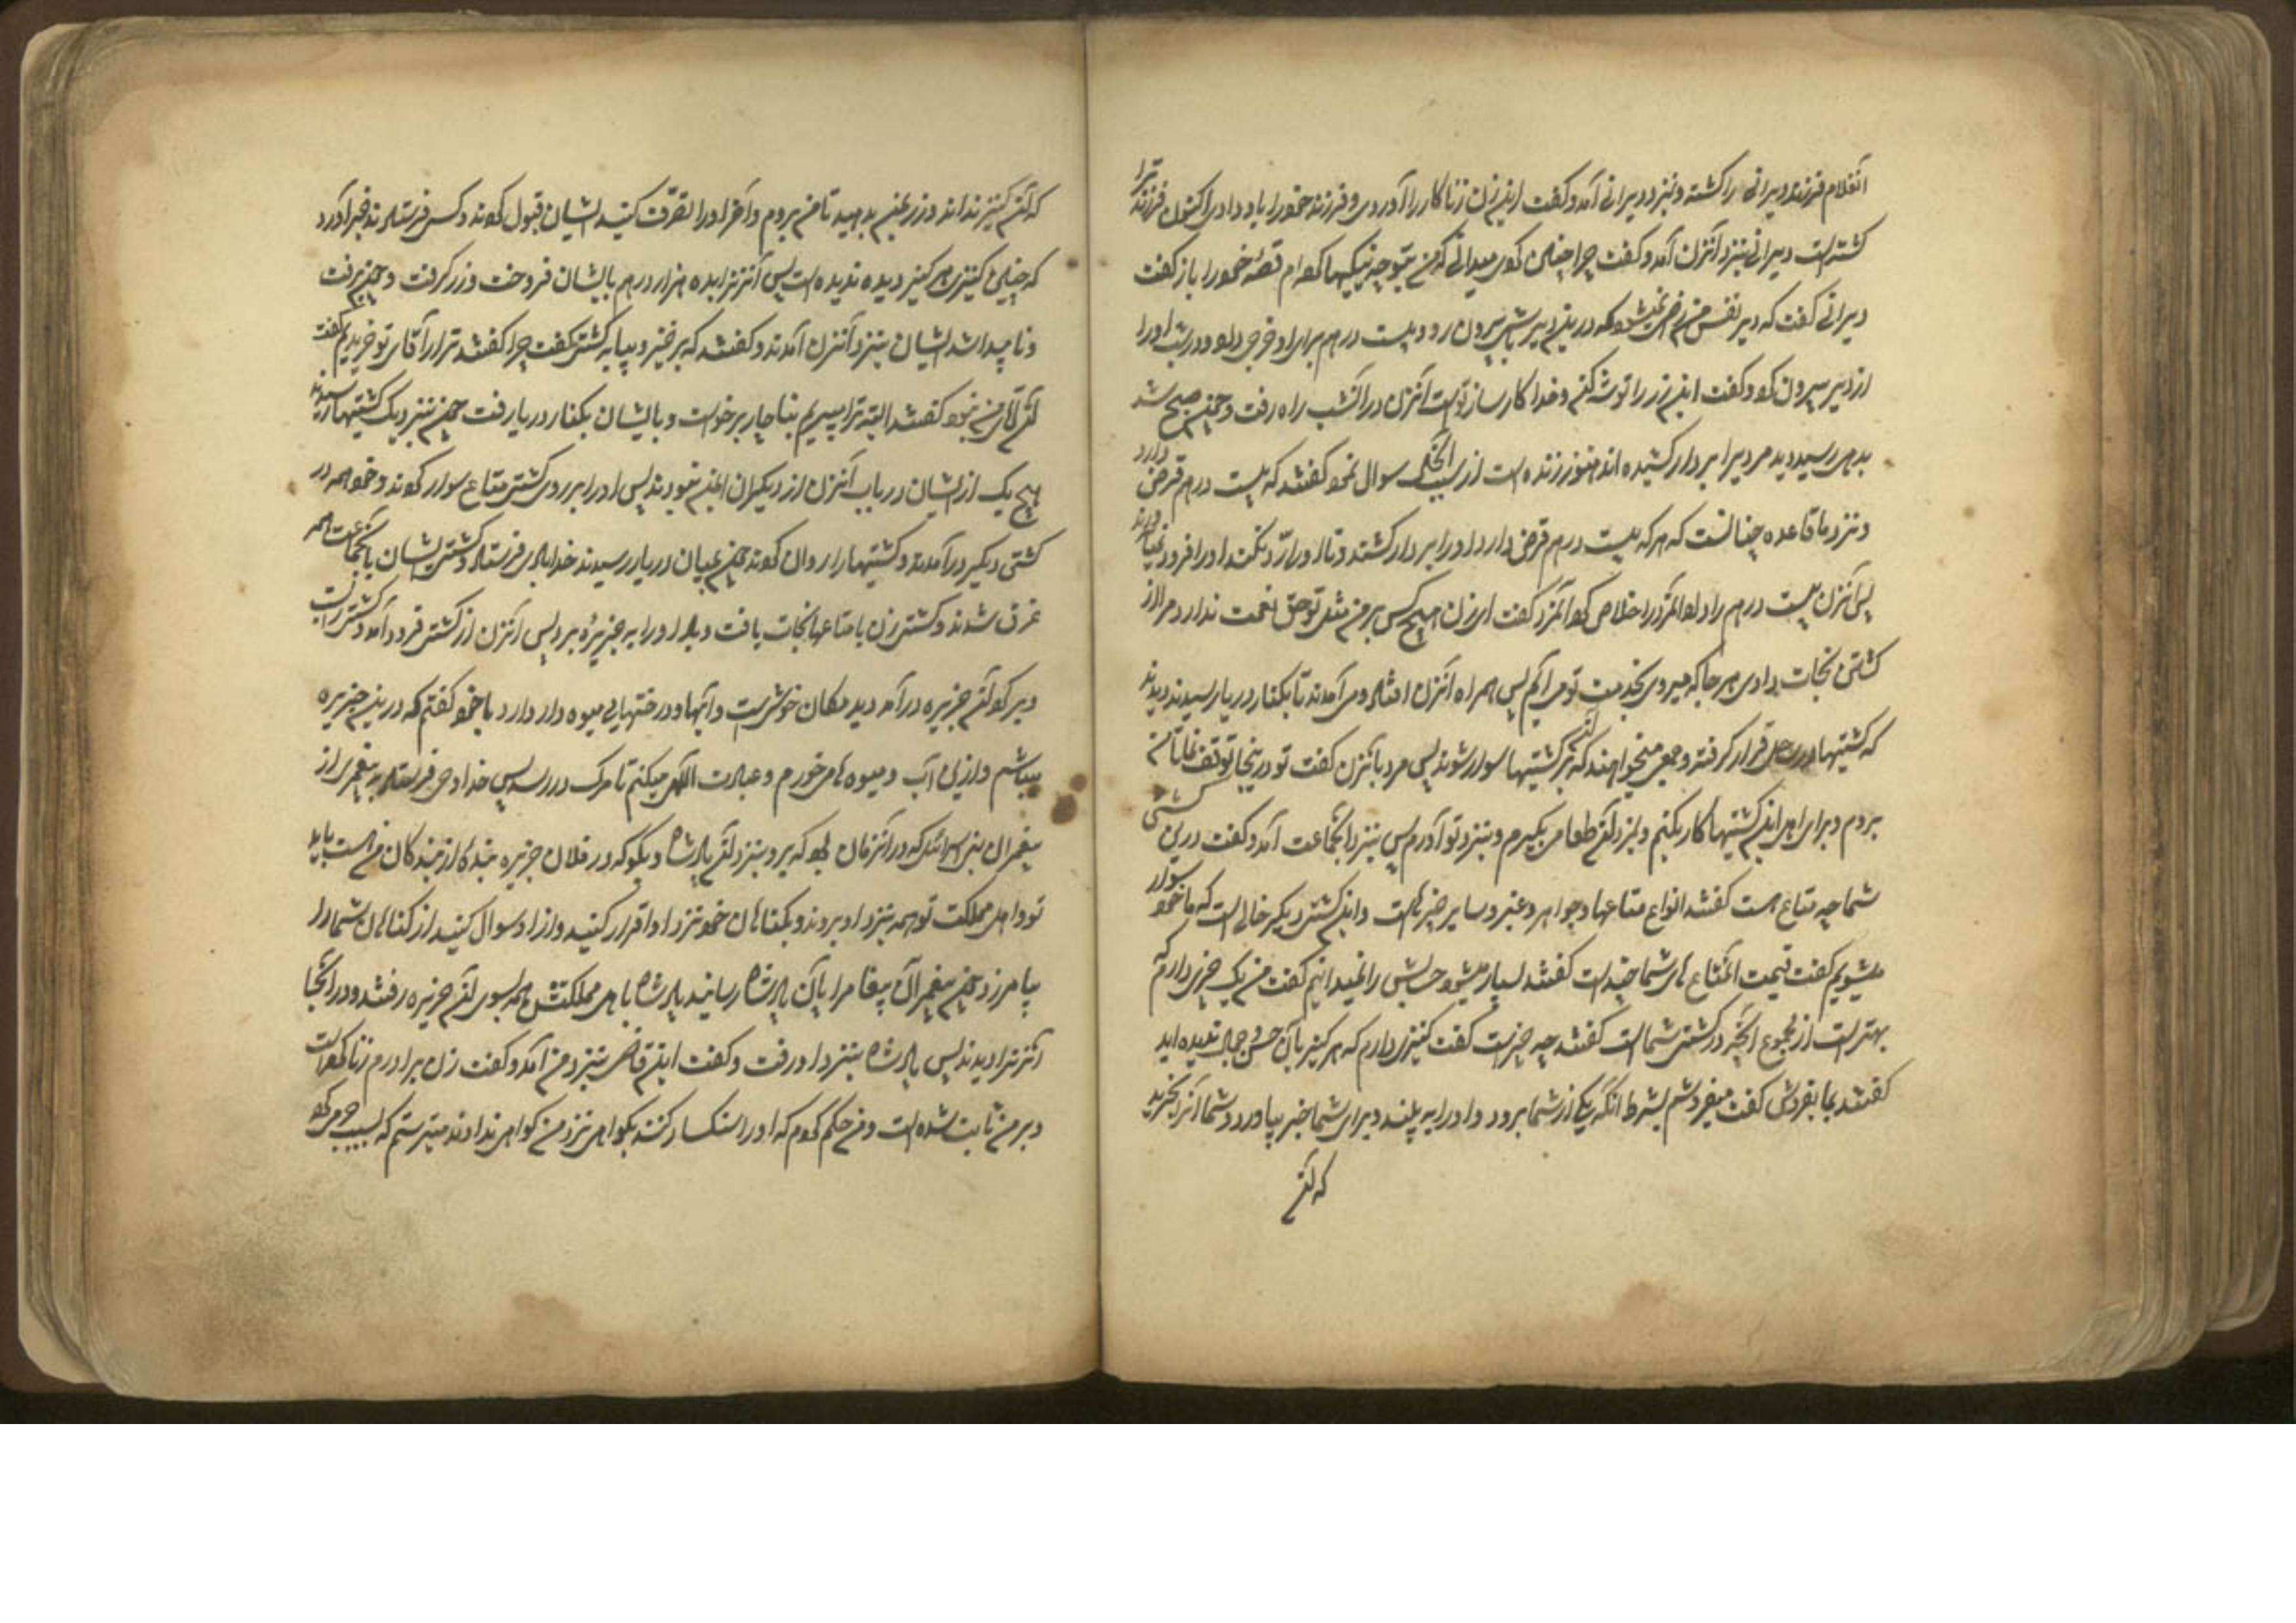 انغلام فرزند دیرانی را کشته و بنزد دیرانی آمد و کفت این زن زناکار را آوردی و فرزند خود را باو دادی اکنون فرزند ترا
کشته است دیرانی بنزد آنزن آمد و کفت چرا چنین کردی میدانی که من بتو چه نیکیها کرده‌ام قصّه خود را باز کفت
دیرانی کفت که دیر نفس من راضی نمیشود که درین دیر باشی بیرون رو و بیست درهم برای او خرجی داد و در شب او را
از دیر بیرون کرد و کفت این زر را توشه کن و خدا کارساز تو است آنزن در آنشب راه رفت و چون صبح شد
بدهی رسید دید مردیرا بر دار کشیده‌اند هنوز زنده است از سبب آنحال سوال نمود کفتند که بیست درهم قرض دارد
و نزد ما قاعده چنانست که هر که بیست درهم قرض دارد او را بر دار کشند و تا ادا نکند او را فرود نمیآورند
پس آنزن بیست درهم را داد و آنمرد را خلاص کرد آنمرد کفت ای زن هیچ کس بر من مثل تو حق نعمت ندارد مرا از
کشتن نجات دادی هر جا که میروی بخدمت تو می آیم پس همراه آنزن افتاد و می آمدند تا بکنار دریا رسیدند دیدند
که کشتیها در ساحل قرار کرفته و جمعی میخواهند که بر آن کشتیها سوار شوند پس مرد بآنزن کفت تو درینجا توقف نما تا من
بروم و برای اهل این کشتیها کار بکنم و بمزد آن طعامی بکیرم و بنزد تو آورم پس بنزد آنجماعت آمد و کفت درین کشتی
شما چه متاع هست کفتند انواع متاعها و جواهر و عنبر و سایر چیزهاست و این کشتی دیکر خالی است که ما خود سوار
میشویم کفت قیمت آنمتاع های شما چند است کفتند بسیار میشود حسابش را نمیدانیم کفت من یک چیزی دارم که
بهتر است از مجموع آنچه در کشتی شماست کفتند چه چیز است کفت کنیزی دارم که هرکز بآن حسن و جمال ندیده‌اید
کفتند بما بفروش کفت میفروشم بشرط آنکه یکی از شما برود و او را به بیند و برای شما خبر بیاورد و شما آنرا بخرید
که آن
که آن کنیز نداند و زر بمن بدهید تا من بروم و آخر او را تصرّف کنید ایشان قبول کردند و کس فرستادند خبر آورد
که چنین کنیزی هرکز ندیده است پس آنزن را بده هزار درهم بایشان فروخت و زر کرفت و چون برفت
و ناپیدا شد ایشان بنزد آنزن آمدند و کفتند که برخیز و بیا به کشتی کفت چرا کفتند ترا از آقای تو خریدیم کفت
آن آقای من نبود کفتند البته ترا میبریم بناچار برخواست و با ایشان بکنار دریا رفت چون بنزدیک کشتیها رسیدند
هیچ یک از ایشان در باب آنزن از دیکران ایمن نبودند پس او را بر روی کشتی متاع سوار کردند و خود همه در
کشتی دیکر درآمدند و کشتیها را روان کردند چون بمیان دریا رسیدند خدا بادی فرستاد و کشتی ایشان با آنجماعت همه
غرق شدند و کشتی زن با متاعها نجات یافت و باد او را به جزیره‌ٔ برد پس آنزن از کشتی فرود آمد و کشتی را بست
و بر کرد آن جزیره درآمد دید مکان خوشی است و آبها و درختهای میوه دار دارد با خود کفتم که درین جزیره
میباشم و ازین آب و میوه ها میخورم و عبادت الهی میکنم تا مرک در رسد پس خدا وحی فرستاد به پیغمبری از
پیغمبران بنی اسرائیل که در آنزمان بود که برو بنزد آن پادشاه و بکو که در فلان جزیره بنده‌ از بندکان من هست باید
تو و اهل مملکت تو همه بنزد او بروند و بکناهان خود نزد او اقرار کنید و از او سوال کنید از کناهان شما درا
بیامرزد چون پیغمبر آن پیغام را بآن پادشاه رسانید پادشاه با اهل مملکتش همه بسوی آن جزیره رفتند و در آنجا
آنزنرا دیدند پس پادشاه بنزد او رفت و کفت این قاضی بنزد من آمد و کفت زن برادرم زنا کرده است
و بر من ثابت نشده است و من حکم کردم که او را سنکسار کنند بکواهی نزد من کواهی ندادند میترسم که بسبب جرمی که